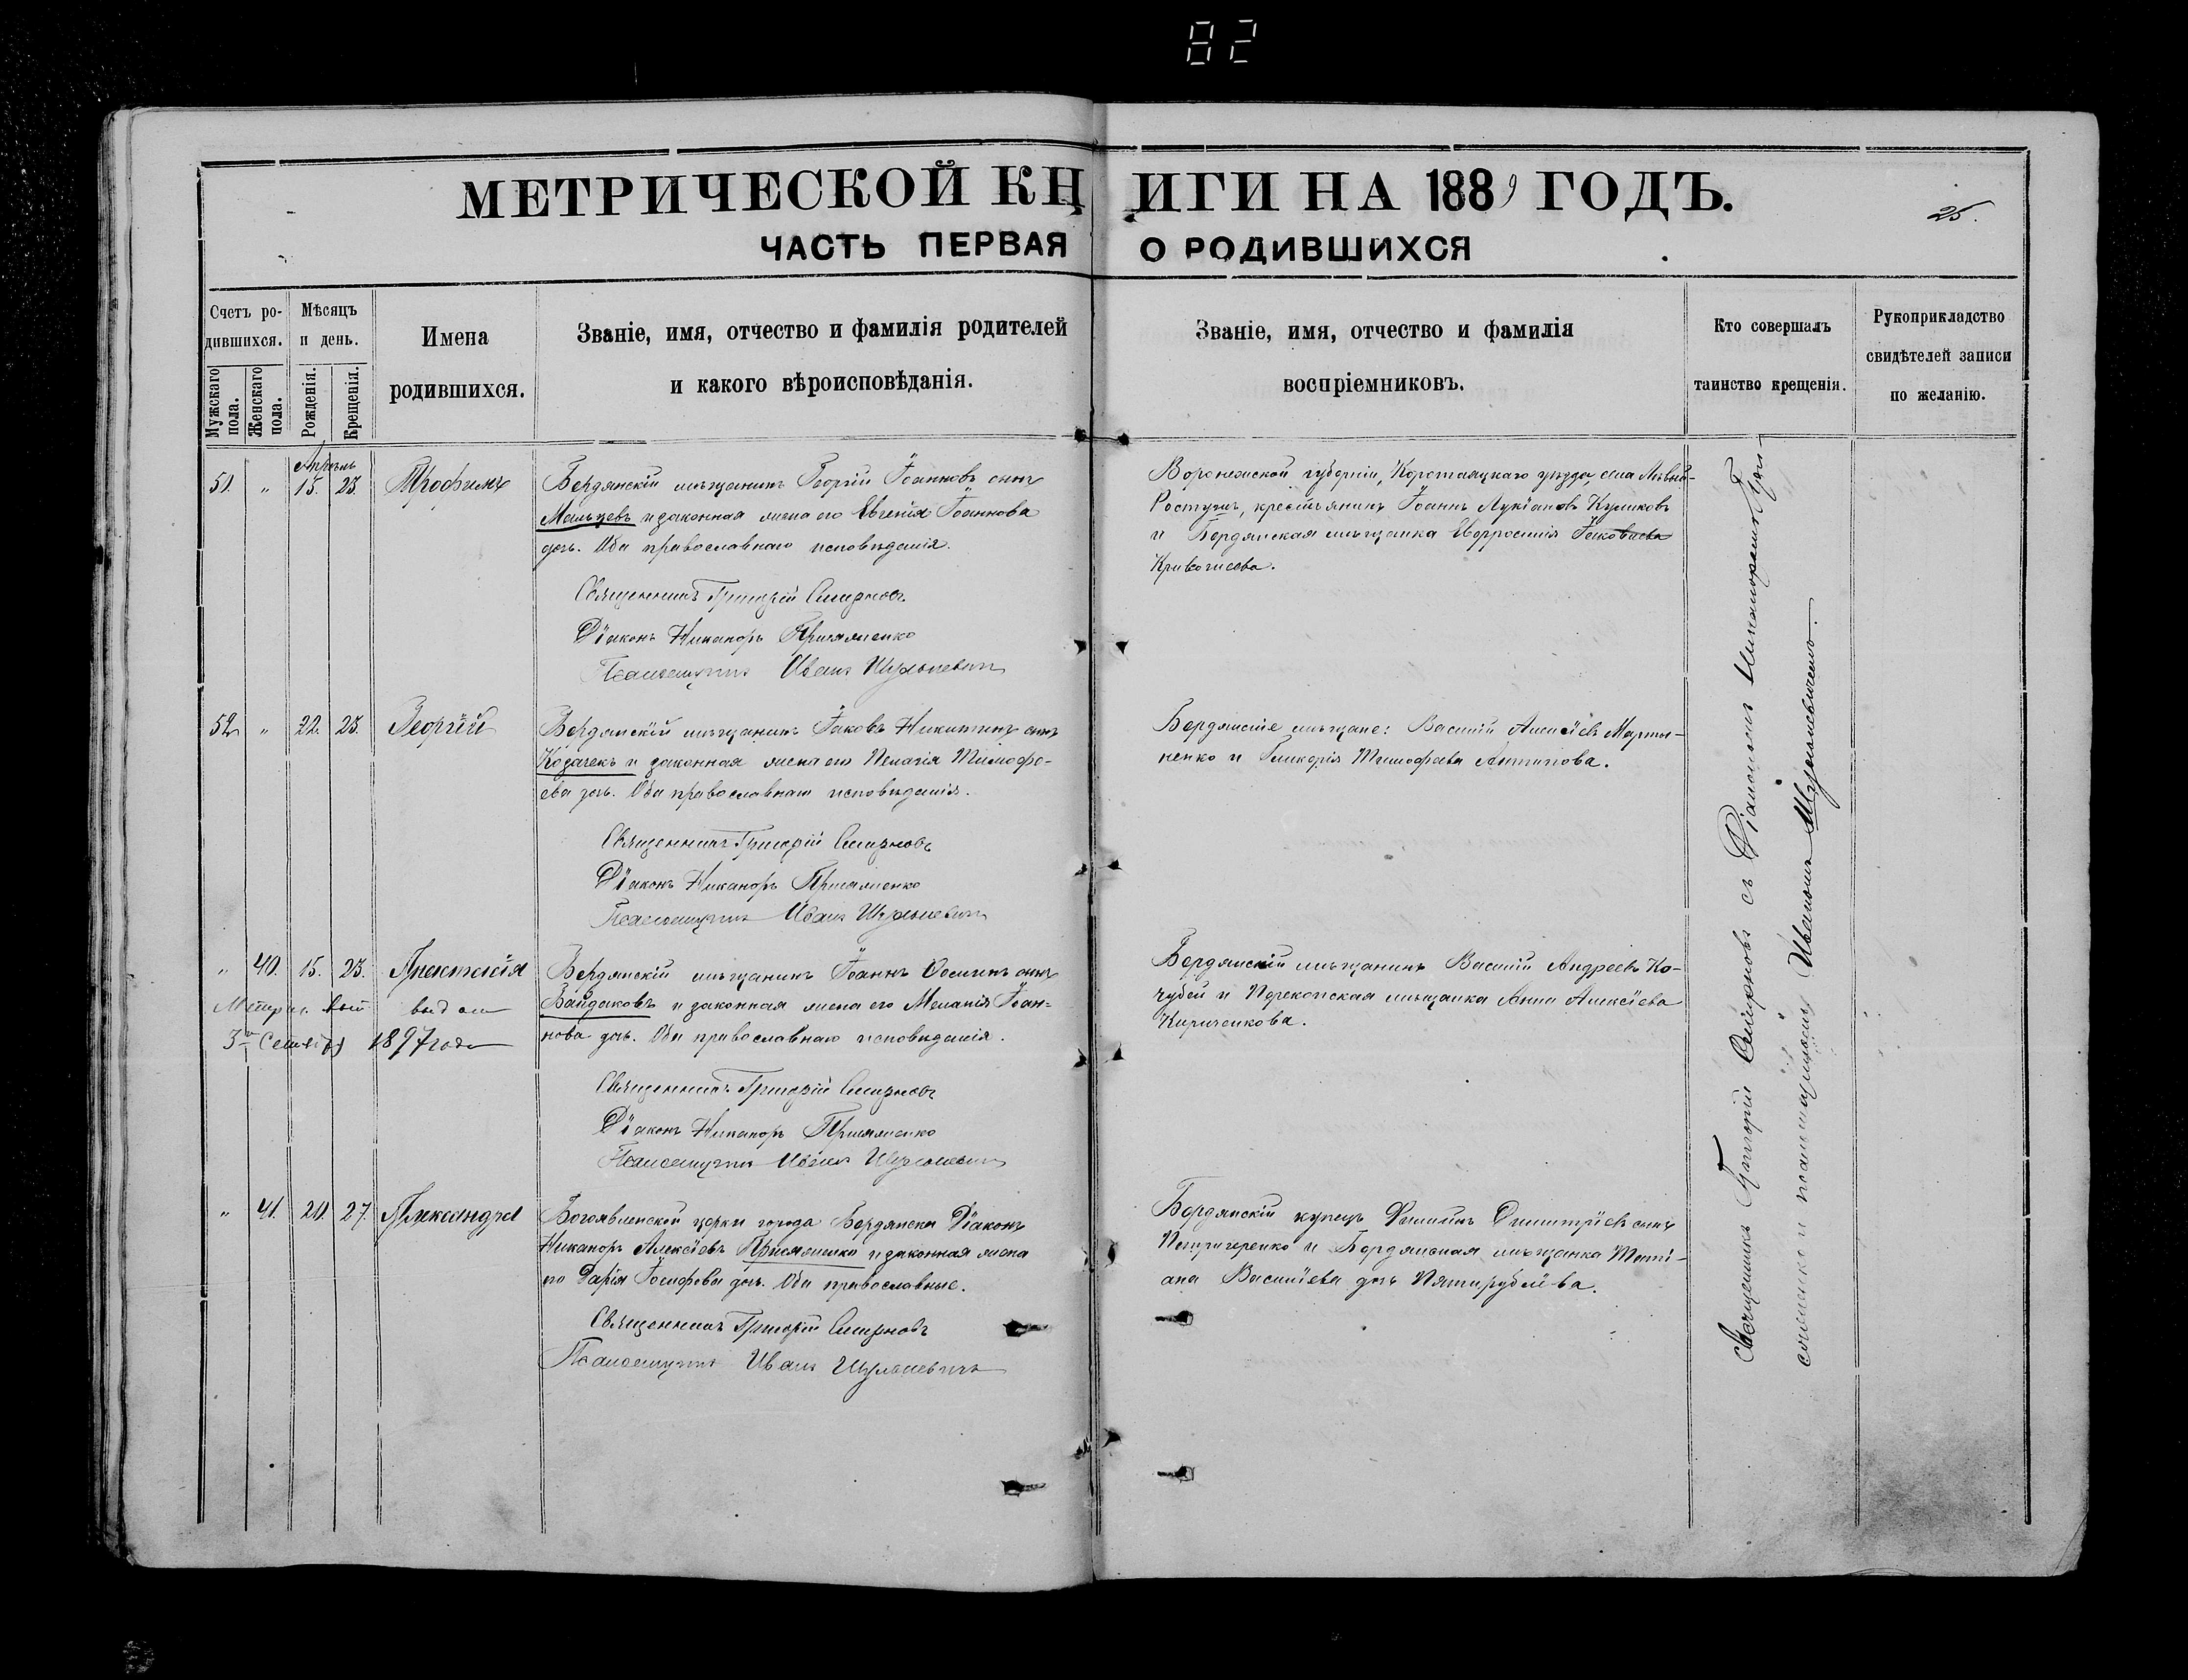 82
МЕТРИЧЕСКОЙ КНИГИ НА 1889 ГОДЪ.
25.
ЧАСТЬ ПЕРВАЯ О РОДИВШИХСЯ
Счетъ родившихся.
Мужскаго пола.
Женскаго пола.
Мѣсяцъ и день.
Рожденія.
Крещенія.
Имена родившихся.
Званіе, имя, отчество и фамилія родителей
и какого вѣроисповѣданія.
Званіе, имя, отчество и фамилія
воспріемниковъ.
Кто совершалъ
таинство крещенія.
Рукоприкладство
свидѣтелей записи
по желанію.
Апрѣль
51. " 15. 23. Трофимъ
Бердянскій мѣщанинъ Георгій Іоанновъ сынъ
Мальцевъ и законная жена его Евгенія Іоаннова
дочь. Оба православнаго исповѣданія.
Священникъ Григорій Смирновъ
Діаконъ Никаноръ
Псаломщикъ Иванъ Шульневичъ
Воронежской губерніи, Коротоякскаго уѣзда, села
крестьянинъ Іоаннъ Лукіановъ Куликовъ
и Бердянская мѣщанка Евфросинія
52. " 22. 23. Георгій
Бердянскій мѣщанинъ Іаковъ Никитинъ сынъ
Козачекъ и законная жена его Пелагія Тимофе-
ева дочь. Оба православнаго исповѣданія.
Священникъ Григорій Смирновъ
Діаконъ Никаноръ
Псаломщикъ Иванъ Шульневичъ
Бердянскіе мѣщане: Василій Алексіевъ Марты-
ненко и Гликерія Тимофѣева Антипова.
" 40. 15. 23. Параскевія
Метрич. вып. выдана
3го Сентября 1897 года
Бердянскій мѣщанинъ Іоаннъ Осипъ сынъ
Байдаковъ и законная жена его Меланія Іоан-
нова дочь. Оба православнаго исповѣданія.
Священникъ Григорій Смирновъ
Діаконъ Никаноръ
Псаломщикъ Иванъ Шульневичъ
Бердянскій мѣщанинъ Василій Андреевъ Ко-
чубей и Перекопская мѣщанка Анна Алексіева
Кириченкова.
" 41. 20. 27. Александра
Богоявленской церкви города Бердянска Діаконъ
Никаноръ Алексіевъ и законная жена
его Дарія Іосифова дочь. Оба православные.
Священникъ Григорій Смирновъ
Псаломщикъ Иванъ Шульневичъ
Бердянскій купецъ Димитріевъ сынъ
и Бердянская мѣщанка Тати-
ана Василіева дочь Пятирублёва.
Священникъ Григорій Смирновъ съ Діакономъ Никаноромъ
и псаломщикомъ Иваномъ Шульневичемъ.